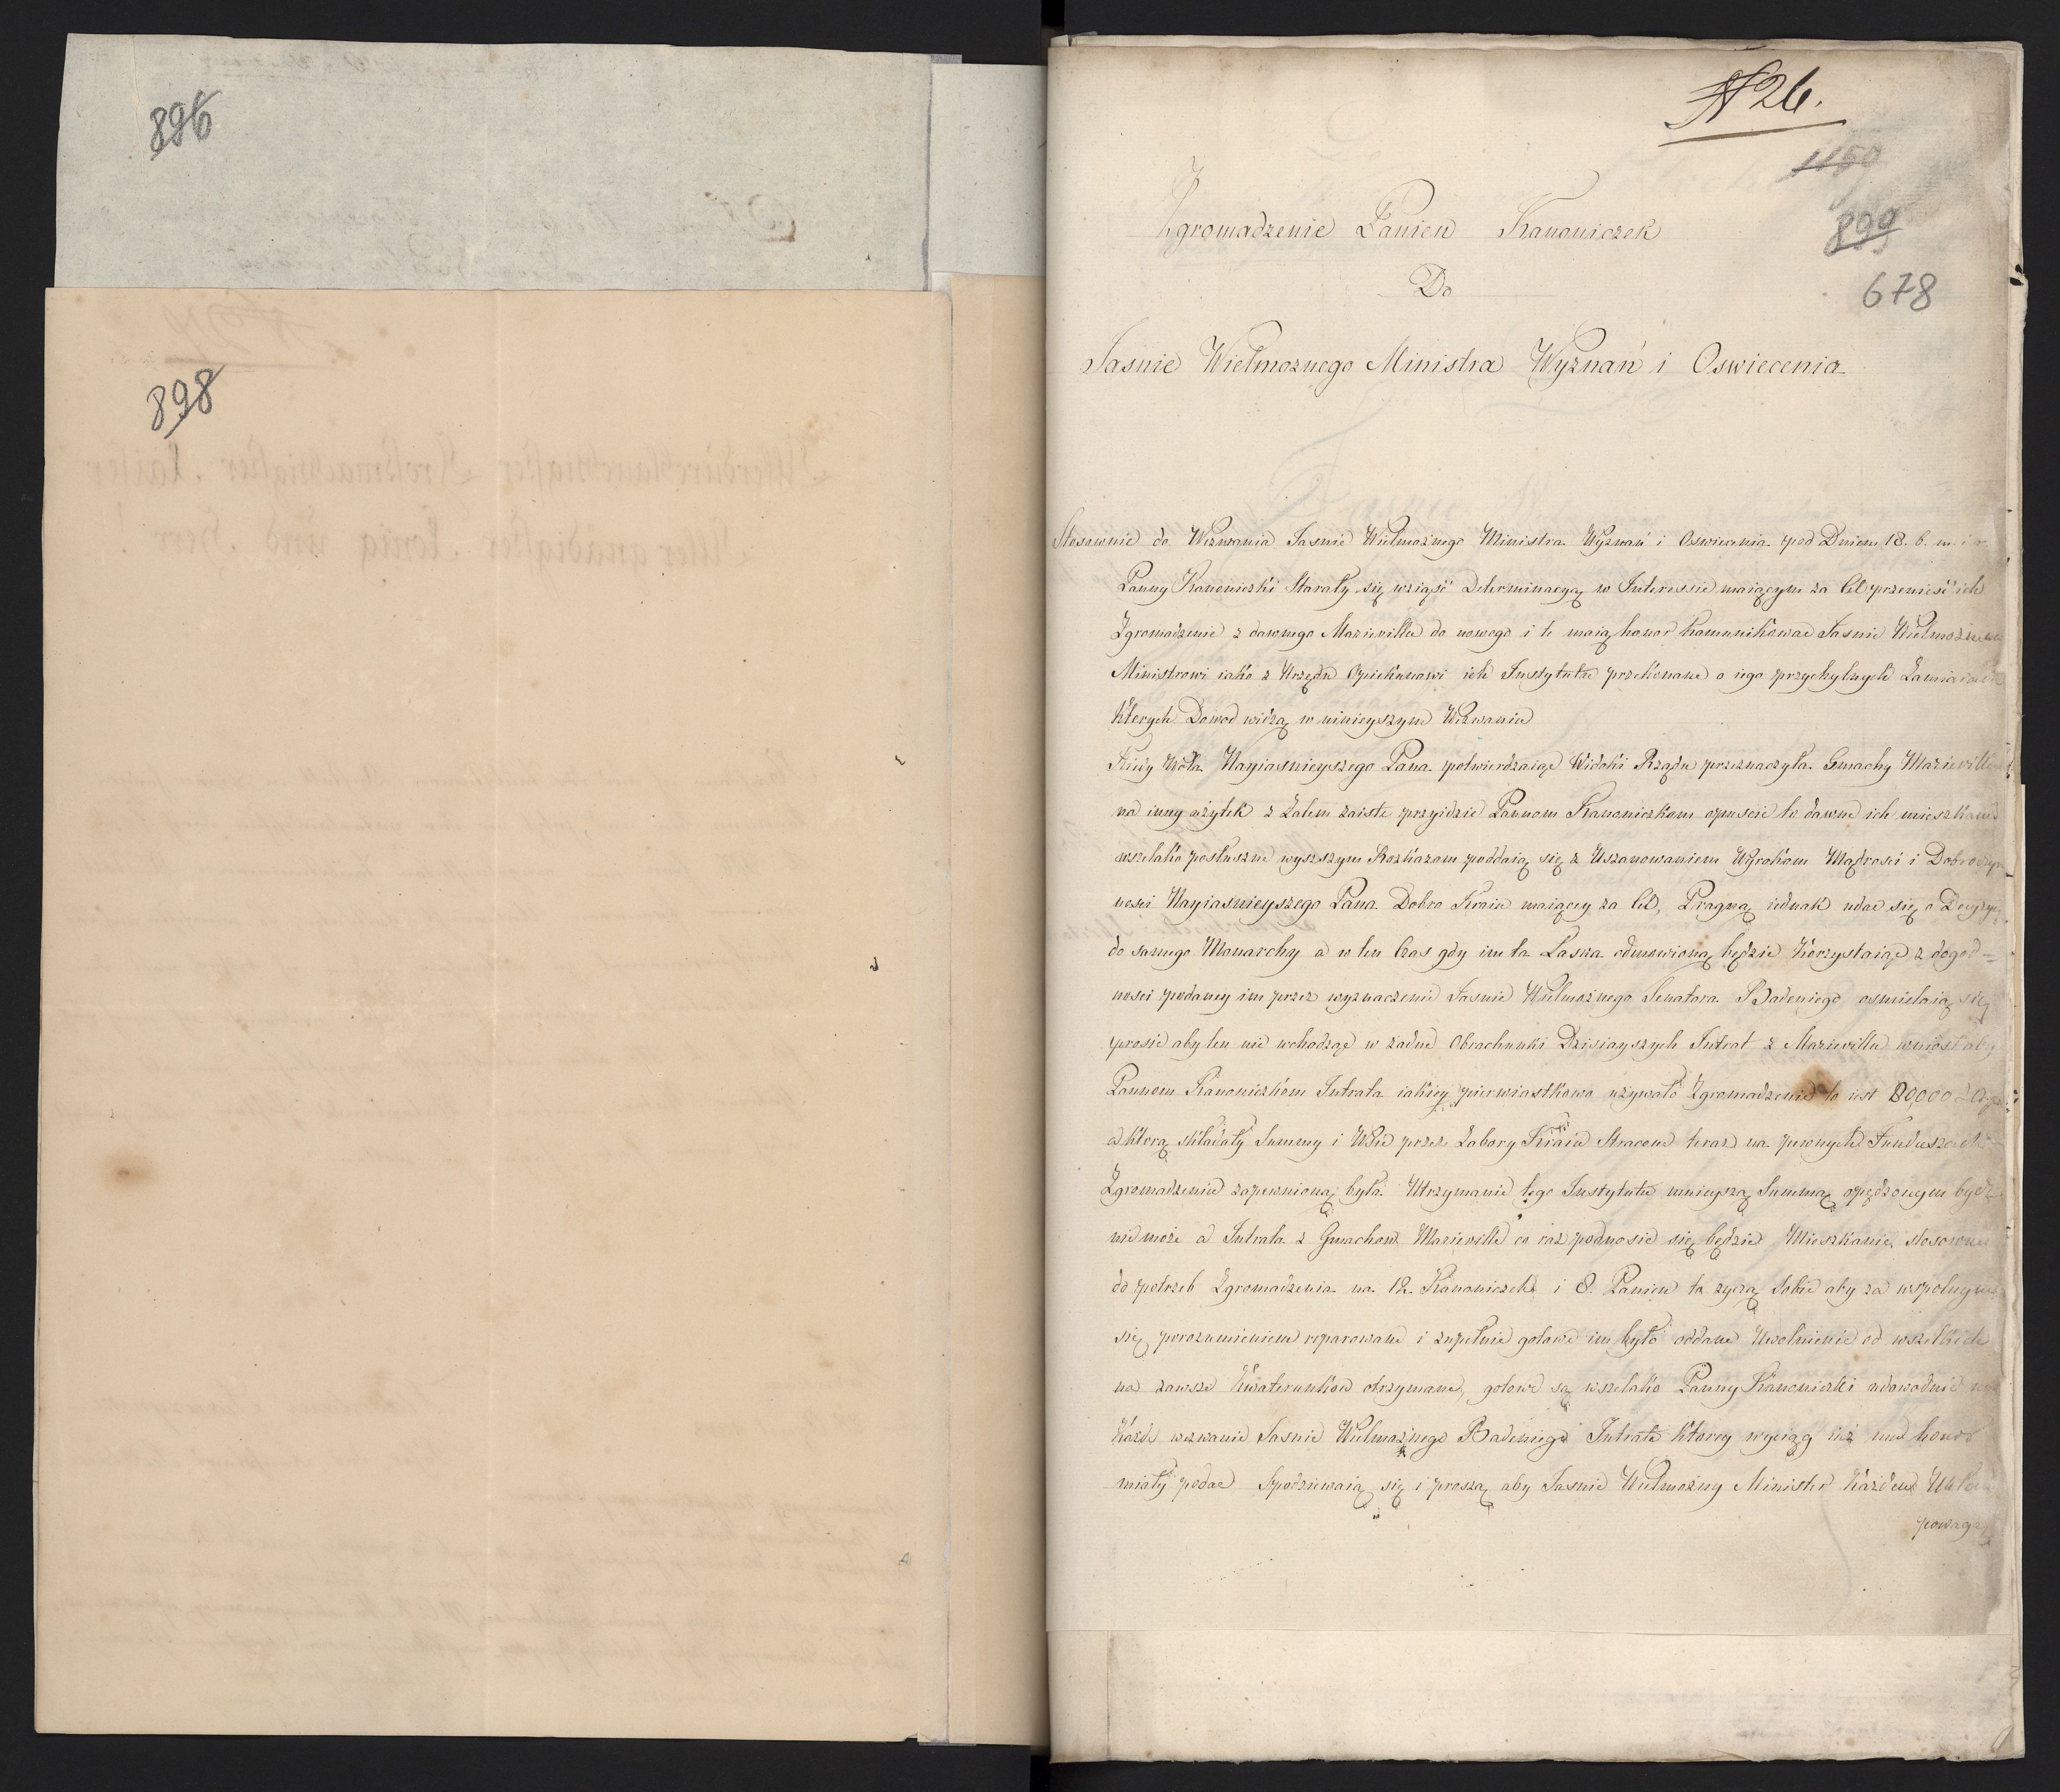 896
898
N 26.
1150
899
678
Zgromadzenie Panien Kanoniczek
Do
Jasnie Wielmoznego Ministra Wyznań i Oswiecenia
Stosownie do Wezwania Jasnie Wielmożnego Ministra Wyznań i Oswiecenia pod Dniem 18. b. m. i r
Panny Kanoniczki Starały się wziąść Determinacyą w Interessie maiącym za Cel przenieść ich
Zgromadzenie z dawnego Marievillu do nowego i te maią honor komunikować Jasnie Wielmożnemu
Ministrowi iako z Urzędu Opiekunowi ich Instytutu przekonane o iego przychylnych Zamiarach
których Dowod widzą w ninieyszym Wezwaniu
Kiedy Wola Nayiasnieyszego Pana potwierdzaiąc Widoki Rządu przeznaczyła Gmachy Marievillu
na inny użytek z Żalem zaiste przyidzie Pannom Kanoniczkom opuscić to dawne ich mieszkanie
wszelako posłuszne wyższym Rozkazom poddaią się z Uszanowaniem Wyrokom Mądrosci i Dobroczyn
nosci Nayiasnieyszego Pana Dobro Kraiu maiącey za Cel, Pragną iednak udać się o Decyzyą
do samego Monarchy a w ten Czas gdy im ta Łaska odmowioną będzie korzystaiąc z dogod=
nosci podaney im przez wyznaczenie Jasnie Wielmożnego Senatora Badeniego osmielaią się
prosić aby ten nie wchodząc w żadne Obrachunki Dzisiayszych Intrat z Marievillu wniosł aby
Pannom Kanoniczkom Intrata iakiey pierwiastkowo używało Zgromadzenie to iest 80,000
a którą składały Summy i Wsie przez Zabory Kraiu Stracone teraz na pewnych Funduszach
Zgromadzeniu zapewnioną była. Utrzymanie tego Instytutu mnieyszą Summą opędzonym bydź
nie może a Intrata z Gmachow Marievillu co raz podnosić się będzie Mieszkanie stosowne
do potrzeb Zgromadzenia na 12. Kanoniczek i 8. Panien to życzą sobie aby za wspolnym
się porozumieniem reparowane i zupełnie gotowe im było oddane Uwolnienie od wszelkich
na zawsze Kwaterunkow otrzymane, gotowe są wszelako Panny Kanoniczki udowodnić na
każde wezwanie Jasnie Wielmożnego Badeniego Intratę którey wyciąg iuż honor
miały podać Spodziewaią się i proszą aby Jasnie Wielmożny Minister
powagą